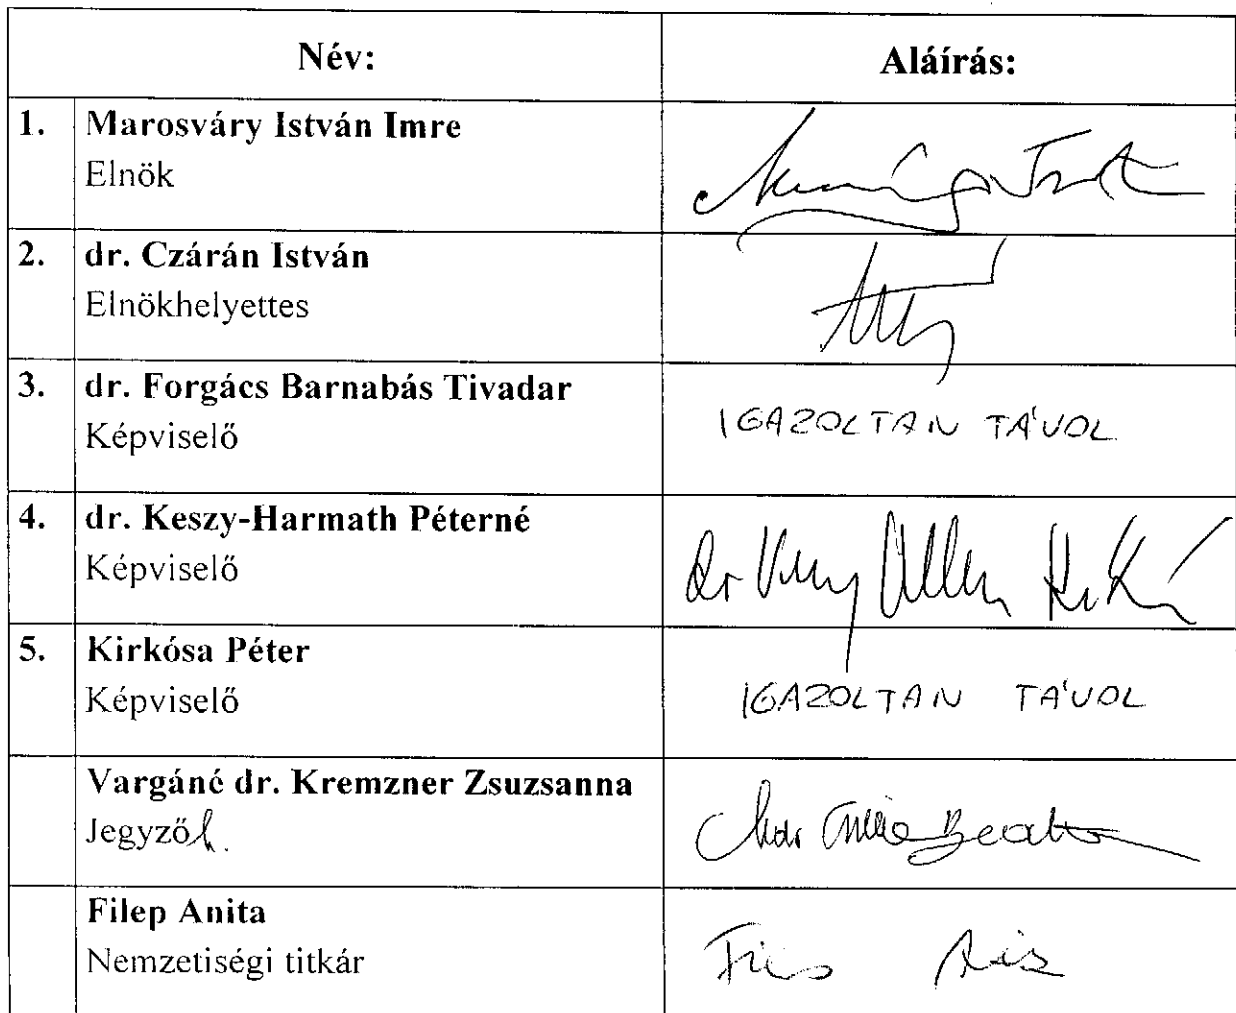 Név: Aláírás:
1. Marosváry István Imre
Elnök
2. dr. Czárán István
Elnökhelyettes
3. dr. Forgács Barnabás Tivadar
Képviselő IGAZOLTAN TÁVOL
4. dr. Keszy-Harmath Péterné
Képviselő
5. Kirkósa Péter
Képviselő IGAZOLTAN TÁVOL
Vargáné dr. Kremzner Zsuzsanna
Jegyző h.
Filep Anita
Nemzetiségi titkár